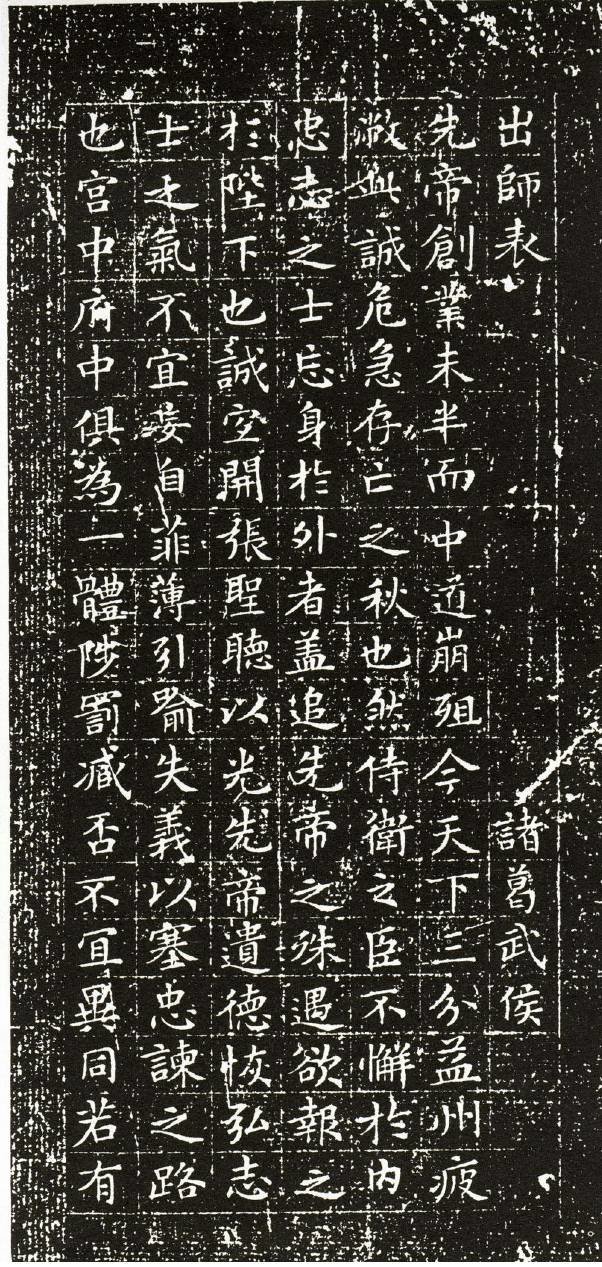 出師表 諸葛武侯
先帝創業未半而中道崩殂今天下三分益州疲
敝此誠危急存亡之秋也然侍衛之臣不懈於内
忠志之士忘身於外者盖追先帝之殊遇欲報之
於陛下也誠宜開張聖聽以光先帝遺德恢弘志
士之氣不宜妄自菲薄引喻失義以塞忠諫之路
也宫中府中俱為一體陟罰臧否不宜異同若有